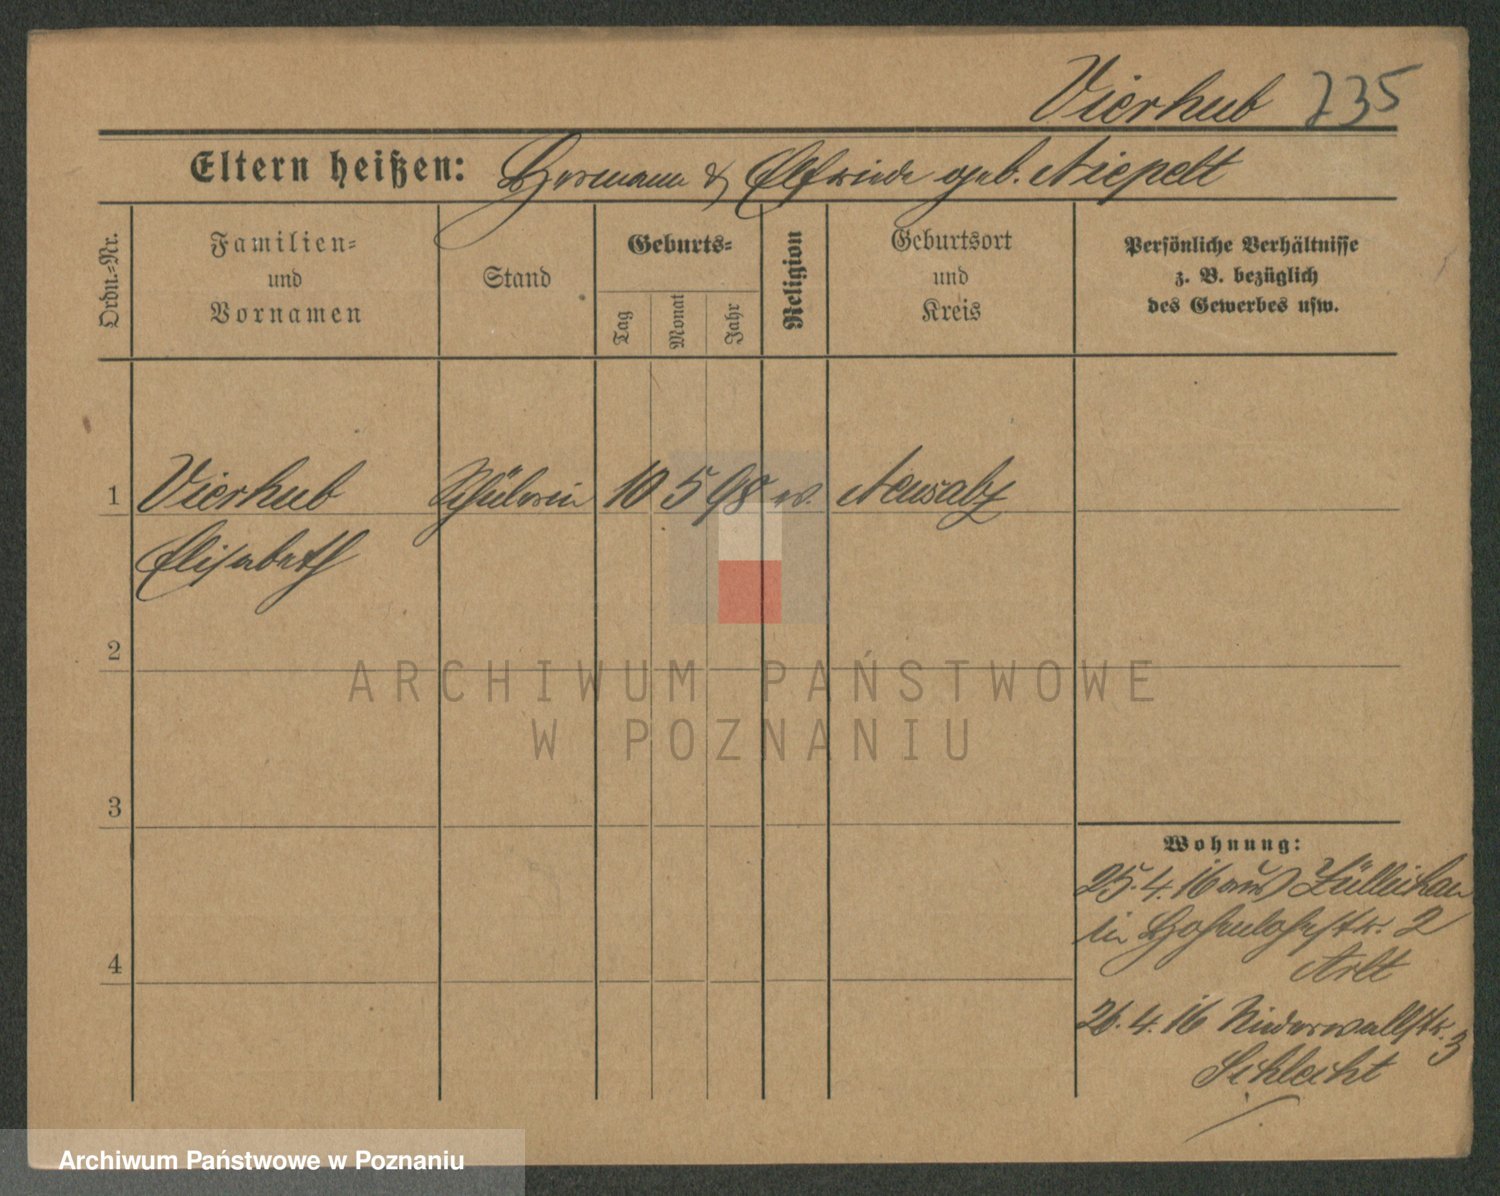 Vierhub 735
Eltern heißen: Hermann & Elfriede geb. Niepelt
Ordn.-Nr.
Familien-
und
Vornamen
Stand
Geburts-
Tag
Monat
Jahr
Religion
Geburtsort
und
Kreis
Persönliche Verhältnisse
z. B. bezüglich
des Gewerbes usw.
1 Vierhub Schülerin 10 5 98 ev. Neusalz
Elisabeth
2
3
4
Wohnung:
25.4.16 aus Züllichau
in Hohenlohestr. 2
Arlt
26.4.16 Niederwallstr. 3
Schlecht
ARCHIWUM PAŃSTWOWE
W POZNANIU
Archiwum Państwowe w Poznaniu